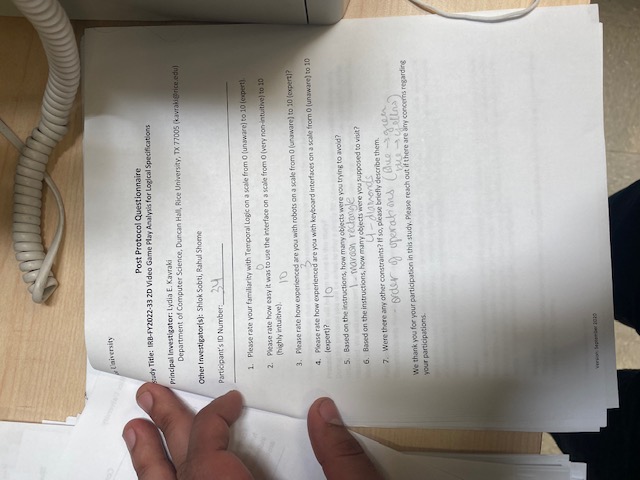 University
Post Protocol Questionnaire
Study Title: IRB-FY2022-33 2D Video Game Play Analysis for Logical Specifications
Principal Investigator: Lydia E. Kavraki
Department of Computer Science, Duncan Hall, Rice University, TX 77005 (kavraki@rice.edu)
Other Investigator(s): Shlok Sobti, Rahul Shome
Participant's ID Number: 34
1. Please rate your familiarity with Temporal Logic on a scale from 0 (unaware) to 10 (expert).
0
2. Please rate how easy it was to use the interface on a scale from 0 (very non-intuitive) to 10
(highly intuitive).
10
3. Please rate how experienced are you with robots on a scale from 0 (unaware) to 10 (expert)?
3
4. Please rate how experienced are you with keyboard interfaces on a scale from 0 (unaware) to 10
(expert)?
10
5. Based on the instructions, how many objects were you trying to avoid?
1 - maroon rectangle
6. Based on the instructions, how many objects were you supposed to visit?
4 - diamonds
7. Were there any other constraints? If so, please briefly describe them.
- order of operations (blue → green
blue → yellow)
We thank you for your participation in this study. Please reach out if there are any concerns regarding
your participations.
Version: September 2020